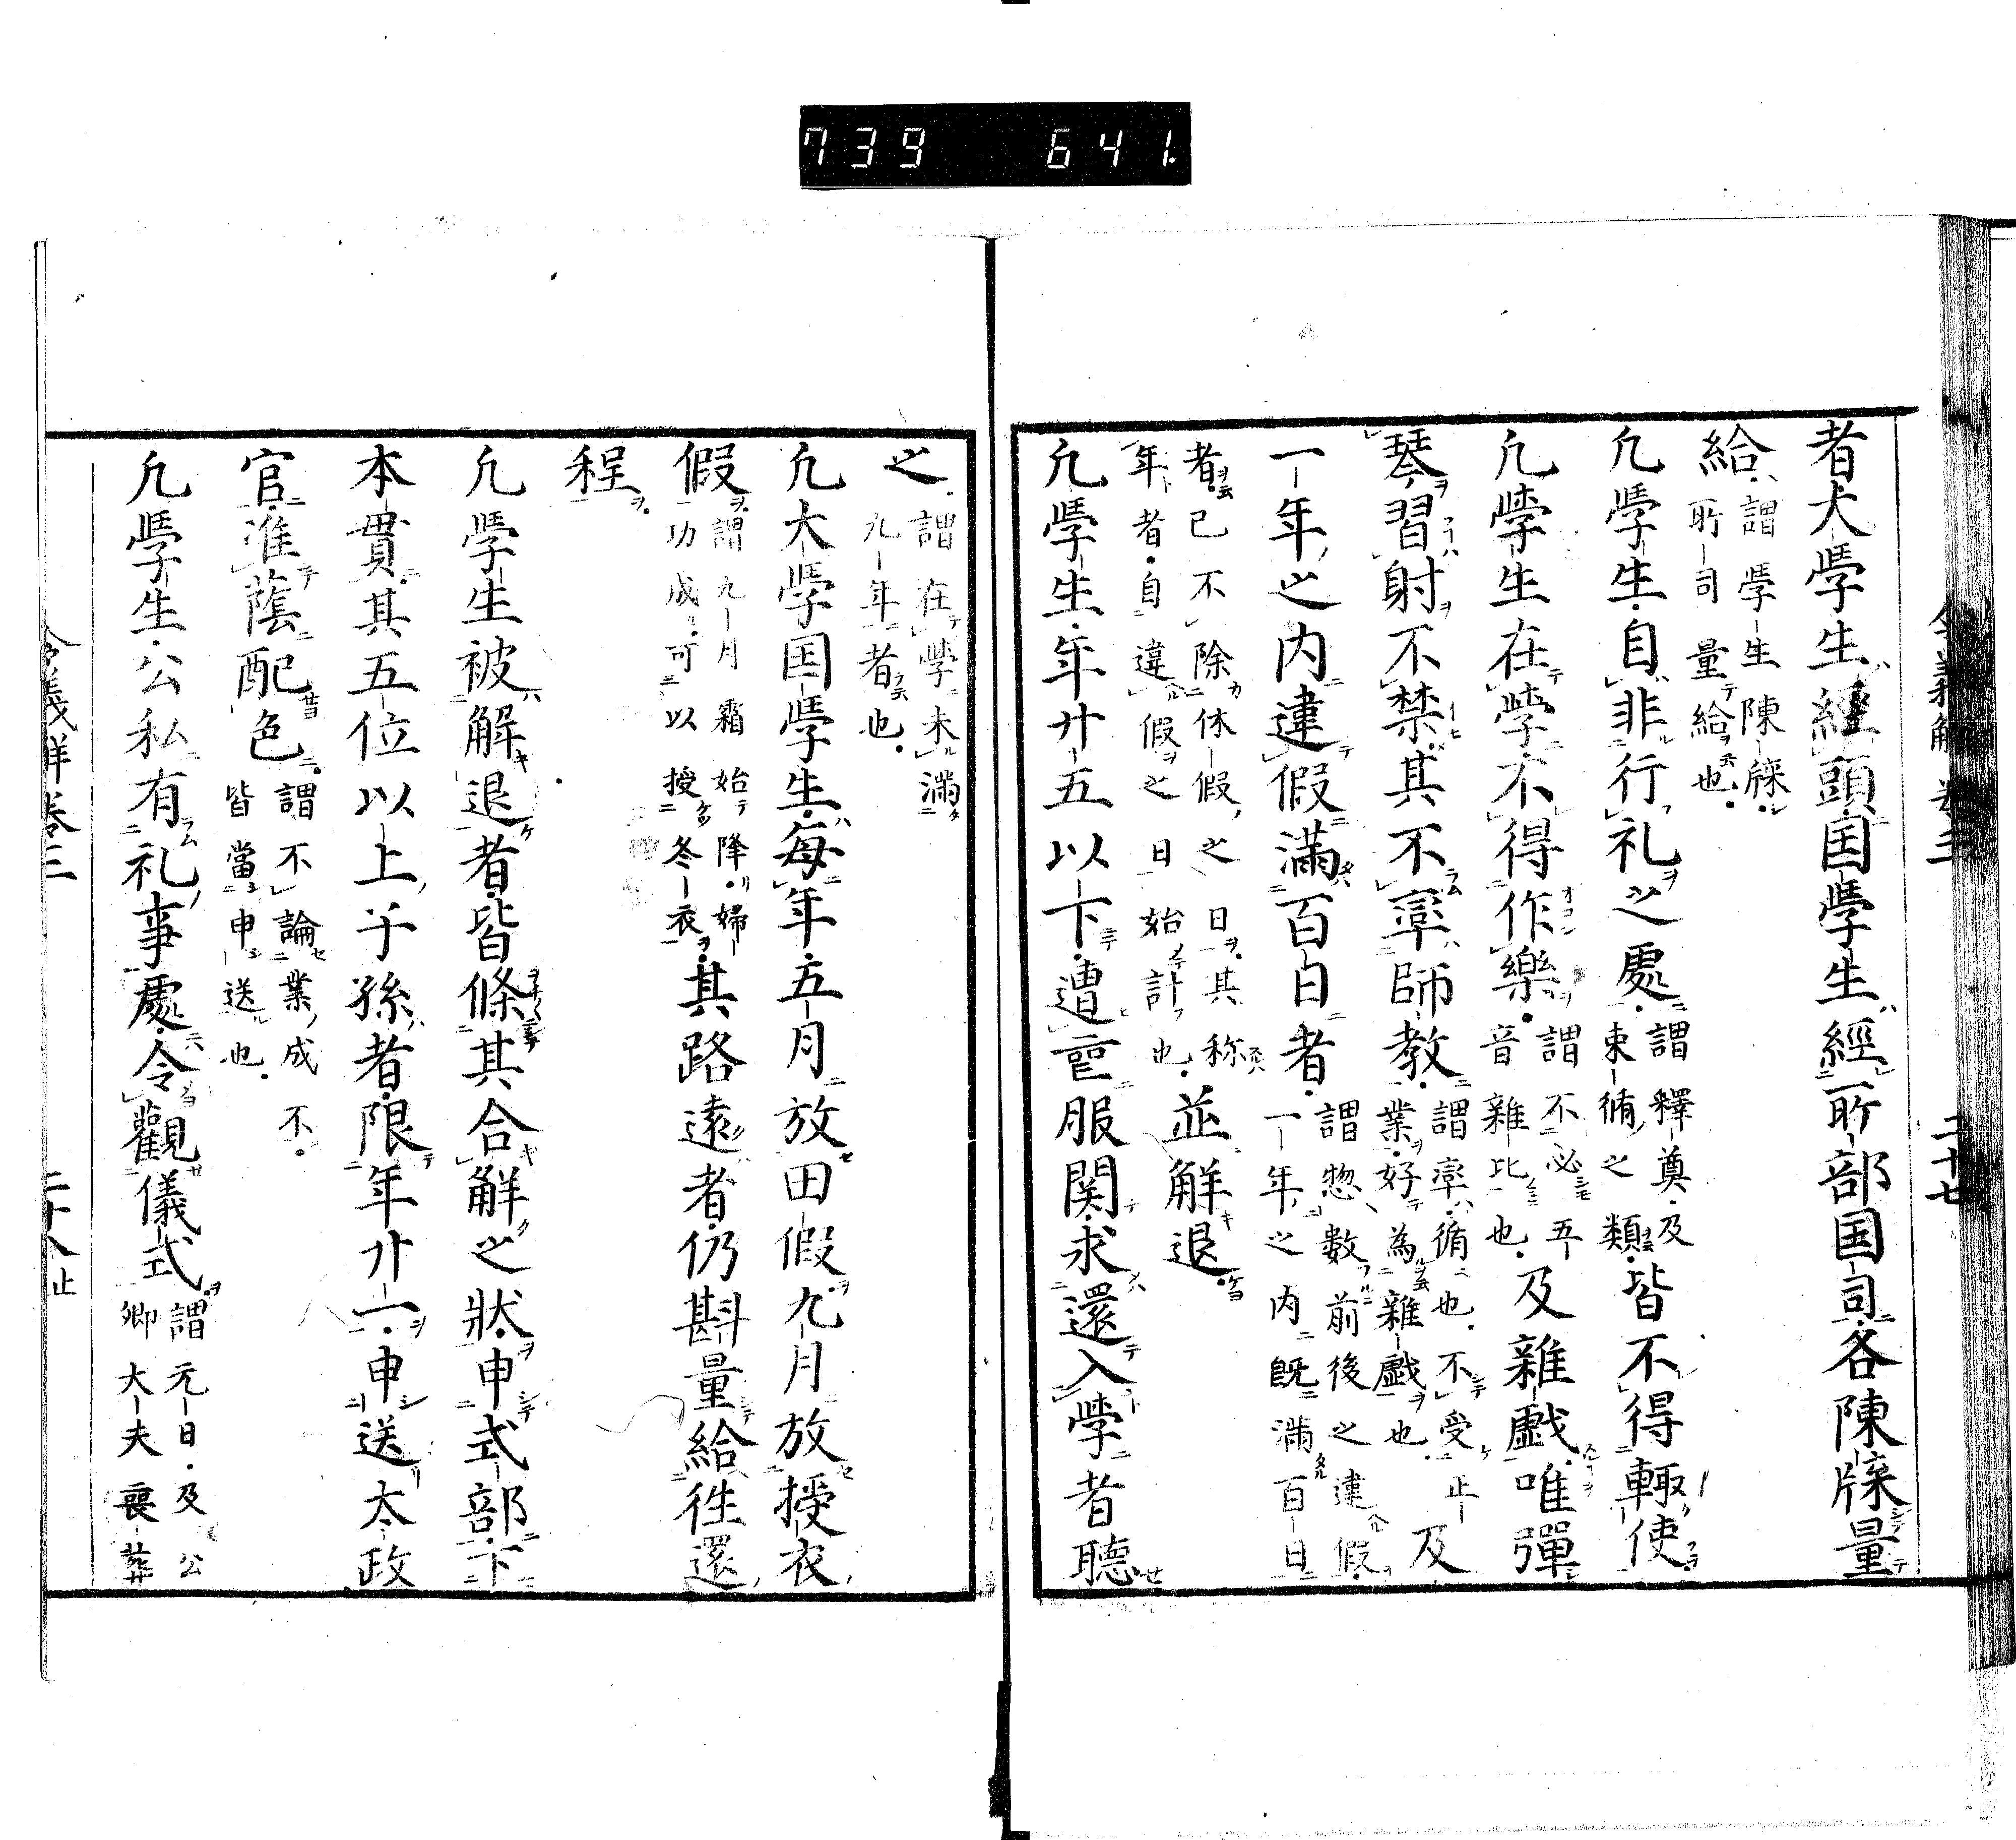 739 641.
者大學生經頭国學生經所部国司各陳牒量
給謂學生陳牒所司量給也
凢學生自非行礼之處謂釋奠及束脩之類皆不得輙使
凢學生在學不得作樂謂不必五音雜比也及雜戯唯彈
琴習射不禁其不率師教謂率循也不受止業好為雜戯也及
一年之内違假滿百日者謂惣數前後之違假一年之内既滿百日
者已不除休假之日其称年者自違假之日始計也並解退
凢學生年廿五以下遭喪服関求還入學者聽
之謂在學未滿九年者也
凢大學国學生每年五月放田假九月放授衣
假謂九月霜始降婦功成可以授冬衣其路遠者仍斟量給往還
程
凢學生被解退者皆條其合解之状申式部下
本貫其五位以上子孫者限年廿一申送太政
官准蔭配色謂不論業成不皆當申送也
凢學生公私有礼事處令觀儀式謂元日及公卿大夫喪葬